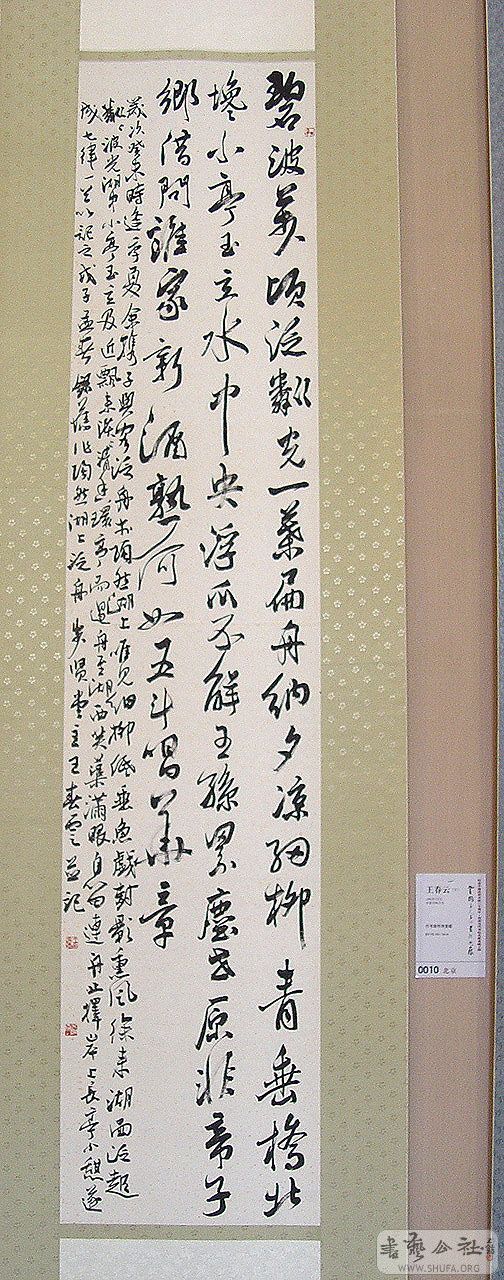 碧波萬頃泛粼光一葉扁舟納夕涼細柳青垂橋北
小亭玉立水中央浮瓜不解王孫累塵世原非帝子
鄉借問誰家新酒熟何如五斗唱華章
歲次癸未時逢季夏余攜子與客泛舟於陶然湖上唯見細柳低垂魚戲對影熏風徐來湖面泛起
粼粼波光湖中小亭玉立及近飄來陣陣清香環亭而過舟至湖西芙蕖滿眼連舟止擇岸上長亭小憩遂
成七律一首以記之戊子孟春錄舊作陶然湖上泛舟賢堂主王春雲並記
王春云
0010 北京
書藝公社
WWW.SHUFA.ORG